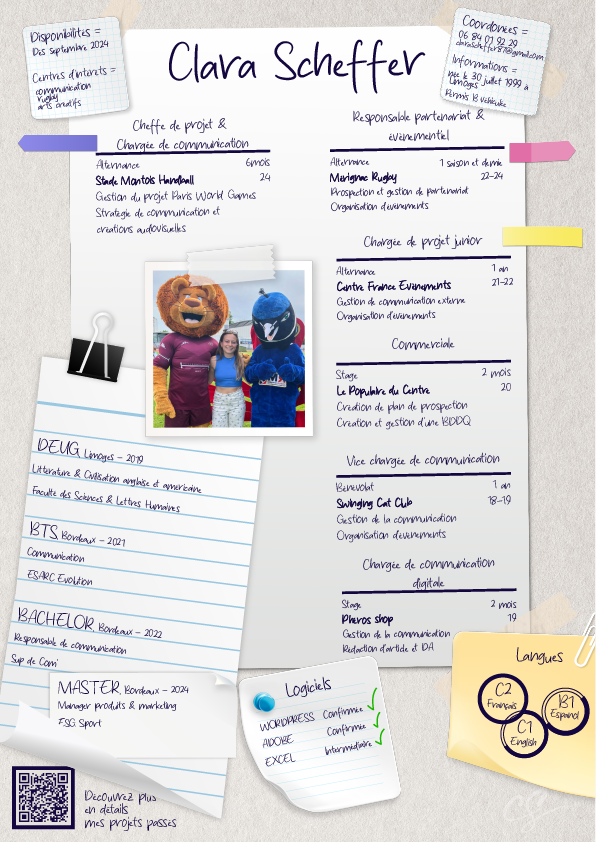 Disponibilités =
Dès septembre 2024
Centres d'intérêts =
communication
rugby
arts créatifs
Clara Scheffer
Coordonées =
06 84 01 92 29
clarascheffer87@gmail.com
Informations =
née le 30 juillet 1999 à
Limoges
Permis B véhiculé
Cheffe de projet &
Chargée de communication
Alternance 6mois
Stade Montois Handball 24
Gestion du projet Paris World Games
Stratégie de communication et
créations audiovisuelles
Responsable partenariat &
évènementiel
Alternance 1 saison et demie
Mérignac Rugby 22-24
Prospection et gestion de partenariat
Organisation d'évènements
Chargée de projet junior
Alternance 1 an
Centre France Evènements 21-22
Gestion de communication externe
Organisation d'évènements
Commerciale
Stage 2 mois
Le Populaire du Centre 20
Création de plan de prospection
Création et gestion d'une BDDQ
Vice chargée de communication
Bénévolat 1 an
Swinging Cat Club 18-19
Gestion de la communication
Organisation d'évènements
Chargée de communication
digitale
Stage 2 mois
Pheros shop 19
Gestion de la communication
Rédaction d'article et DA
DEUG, Limoges - 2019
Littérature & Civilisation anglaise et américaine
Faculté des Sciences & Lettres Humaines
BTS, Bordeaux - 2021
Communication
ESARC Evolution
BACHELOR, Bordeaux - 2022
Responsable de communication
Sup de Com'
MASTER, Bordeaux - 2024
Manager produits & marketing
ESG Sport
Logiciels
WORDPRESS Confirmée
ADOBE Confirmée
EXCEL Intermédiaire
Langues
C2
Français
B1
Espanol
C1
English
Découvrez plus
en détails
mes projets passés